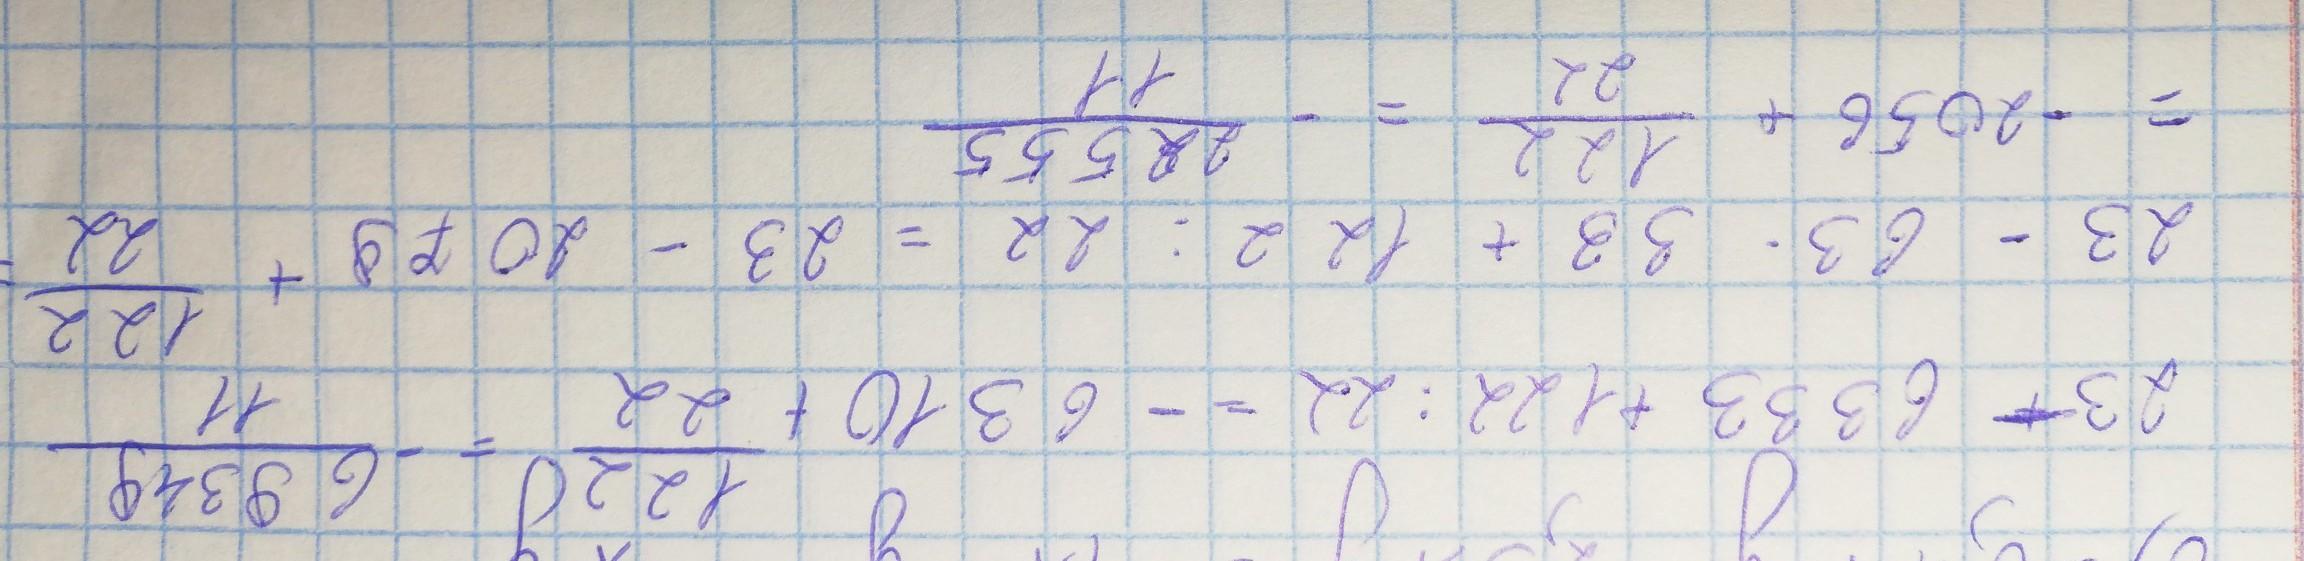 23 - 6333 + 122 : 22 = - 6310 + \frac{122}{22} = - \frac{69349}{11}
23 - 63 · 33 + 122 : 22 = 23 - 2079 + \frac{122}{22} =
= - 2056 + \frac{122}{22} = - \frac{22555}{11}